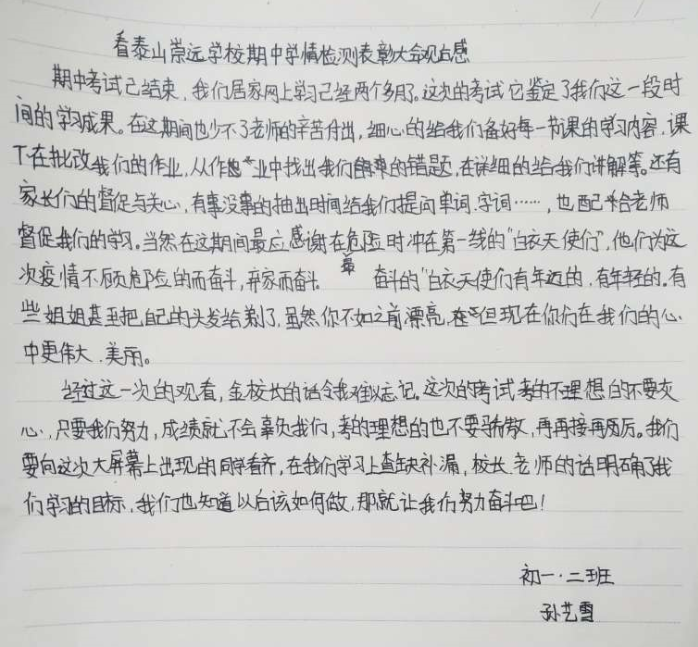 看泰山崇远学校期中学情检测表彰大会观后感
期中考试已结束，我们居家网上学习已经两个多月了。这次的考试它鉴定了我们这一段时
间的学习成果。在这期间也少不了老师的辛苦付出，细心的给我们备好每一节课的学习内容，课
下在批改我们的作业，从作业中找出我们的错题，在详细的给我们讲解等。还有
家长们的督促与关心，有事没事的抽出时间给我们提问单词.字词……，也配合给老师
督促我们的学习。当然在这期间最应感谢在危险时冲在第一线的"白衣天使们"，他们为这
次疫情不顾危险的而奋斗，弃家而奋斗。最 奋斗的"白衣天使们有年迈的，有年轻的。有
些姐姐甚至把自己的头发给剃了，虽然你不如之前漂亮，但现在你们在我们的心
中更伟大.美丽。
经过这一次的观看，金校长的话令我难以忘记。这次的考试考的不理想的不要灰
心，只要我们努力，成绩就不会辜负我们，考的理想的也不要骄傲，再再接再厉。我们
要向这次大屏幕上出现的同学看齐，在我们学习上查缺补漏，校长.老师的话明确了我
们学习的目标，我们也知道以后该如何做，那就让我们努力奋斗吧！
初一·二班
孙艺雪